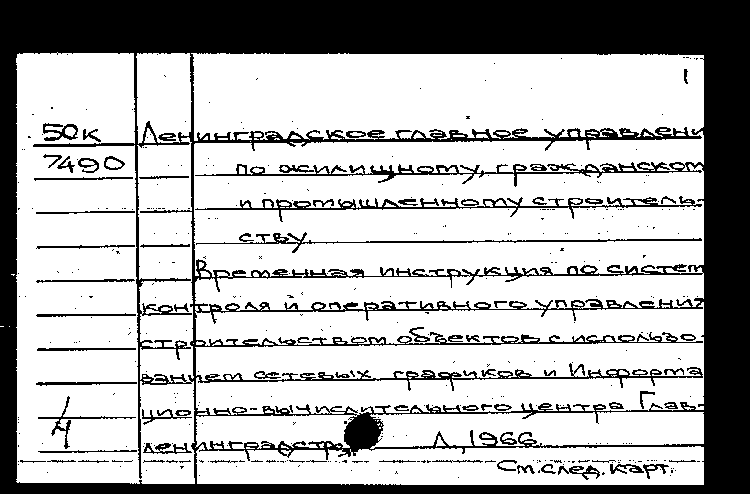 1
50к Ленинградское главное управлени
7490 по жилищному, гражданском
и промышленному строитель-
ству.
Временная инструкция по систем
контроля и оперативного управлени
строительством объектов с использо-
ванием сетевых графиков и Информа
ционно-вычислительного центра Глав-
4 ленинградстр Л., 1966
См. след. карт.